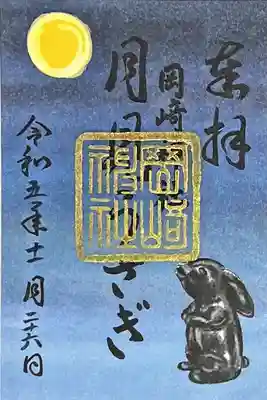 奉拝
岡崎
月見うさぎ
岡崎神社
令和五年十一月二十六日